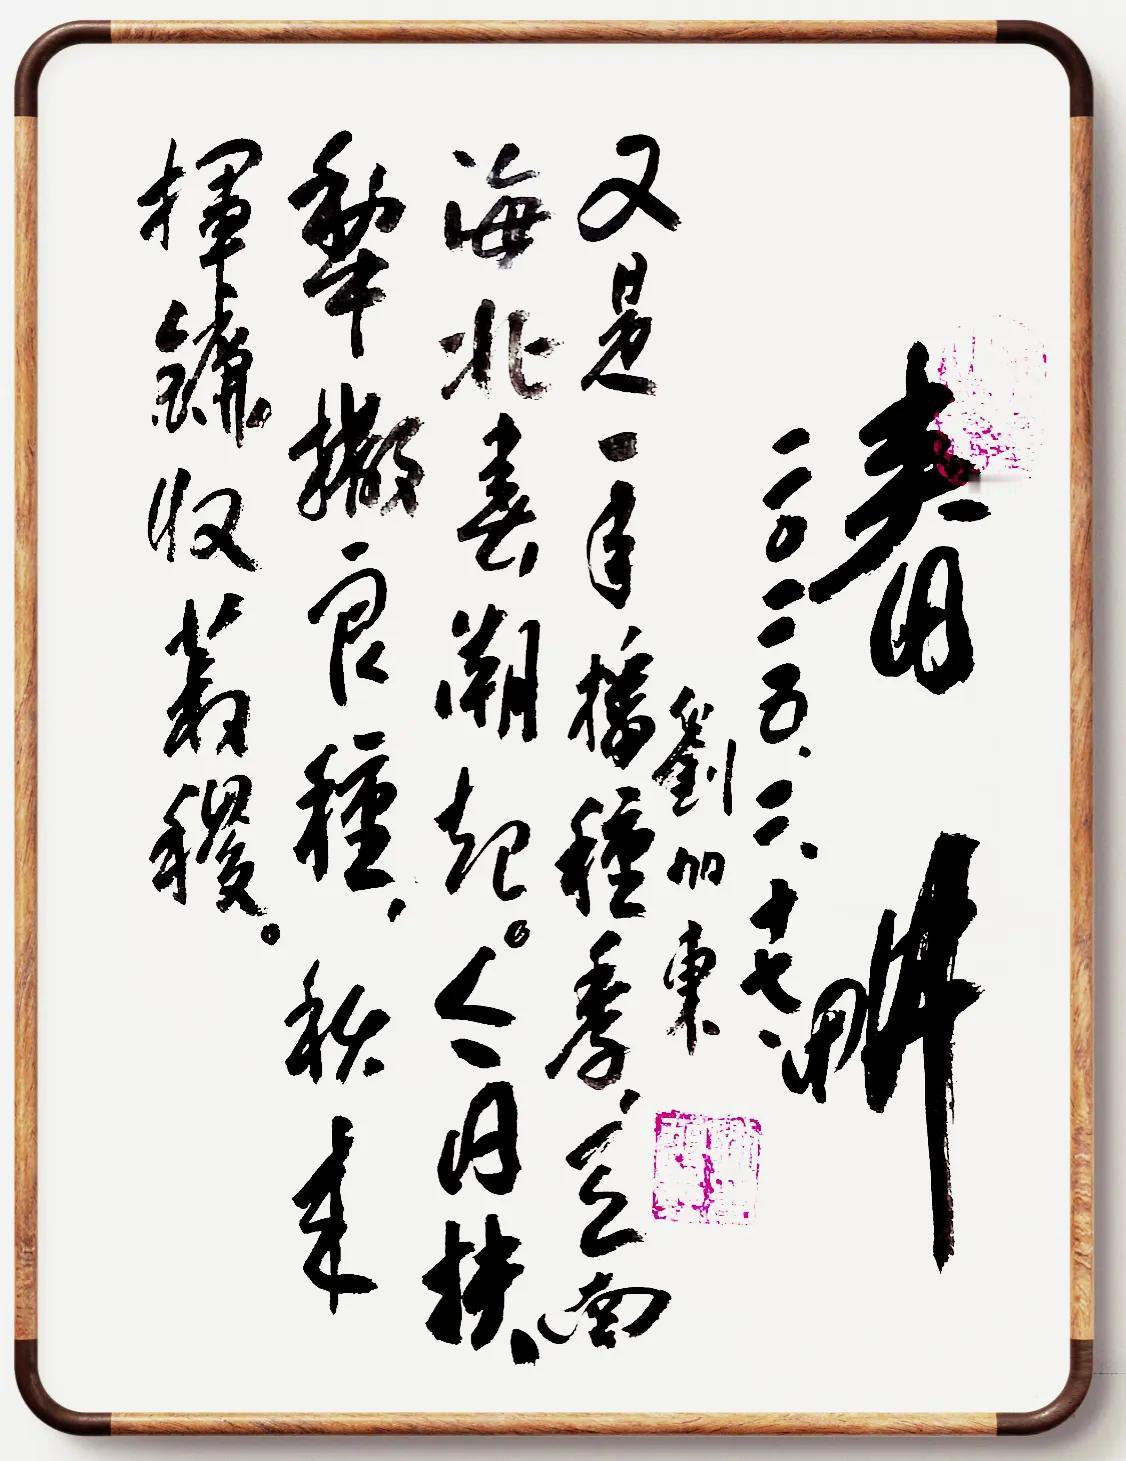 春耕
二〇二五.二.十七.
劉加東
又是一年播種季,天南
海北春潮起。今日扶
犁撒良種,秋來
揮鐮收菽稷。